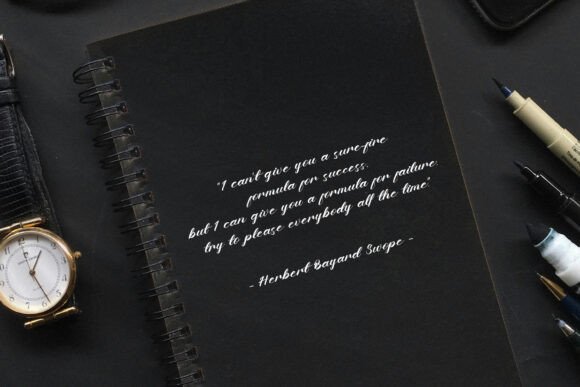 "I can't give you a sure-fire
formula for success,
but I can give you a formula for failure:
try to please everybody all the time."
- Herbert Bayard Swope -